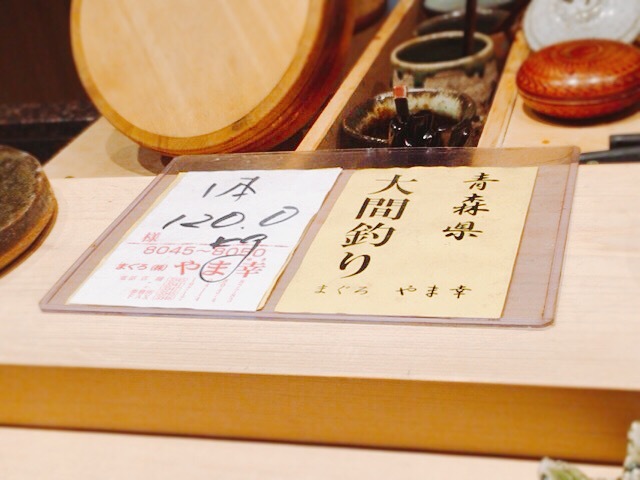 1本
120.0
様
8045~8050
まぐろ㈲やま幸
青森県
大間釣り
まぐろ やま幸